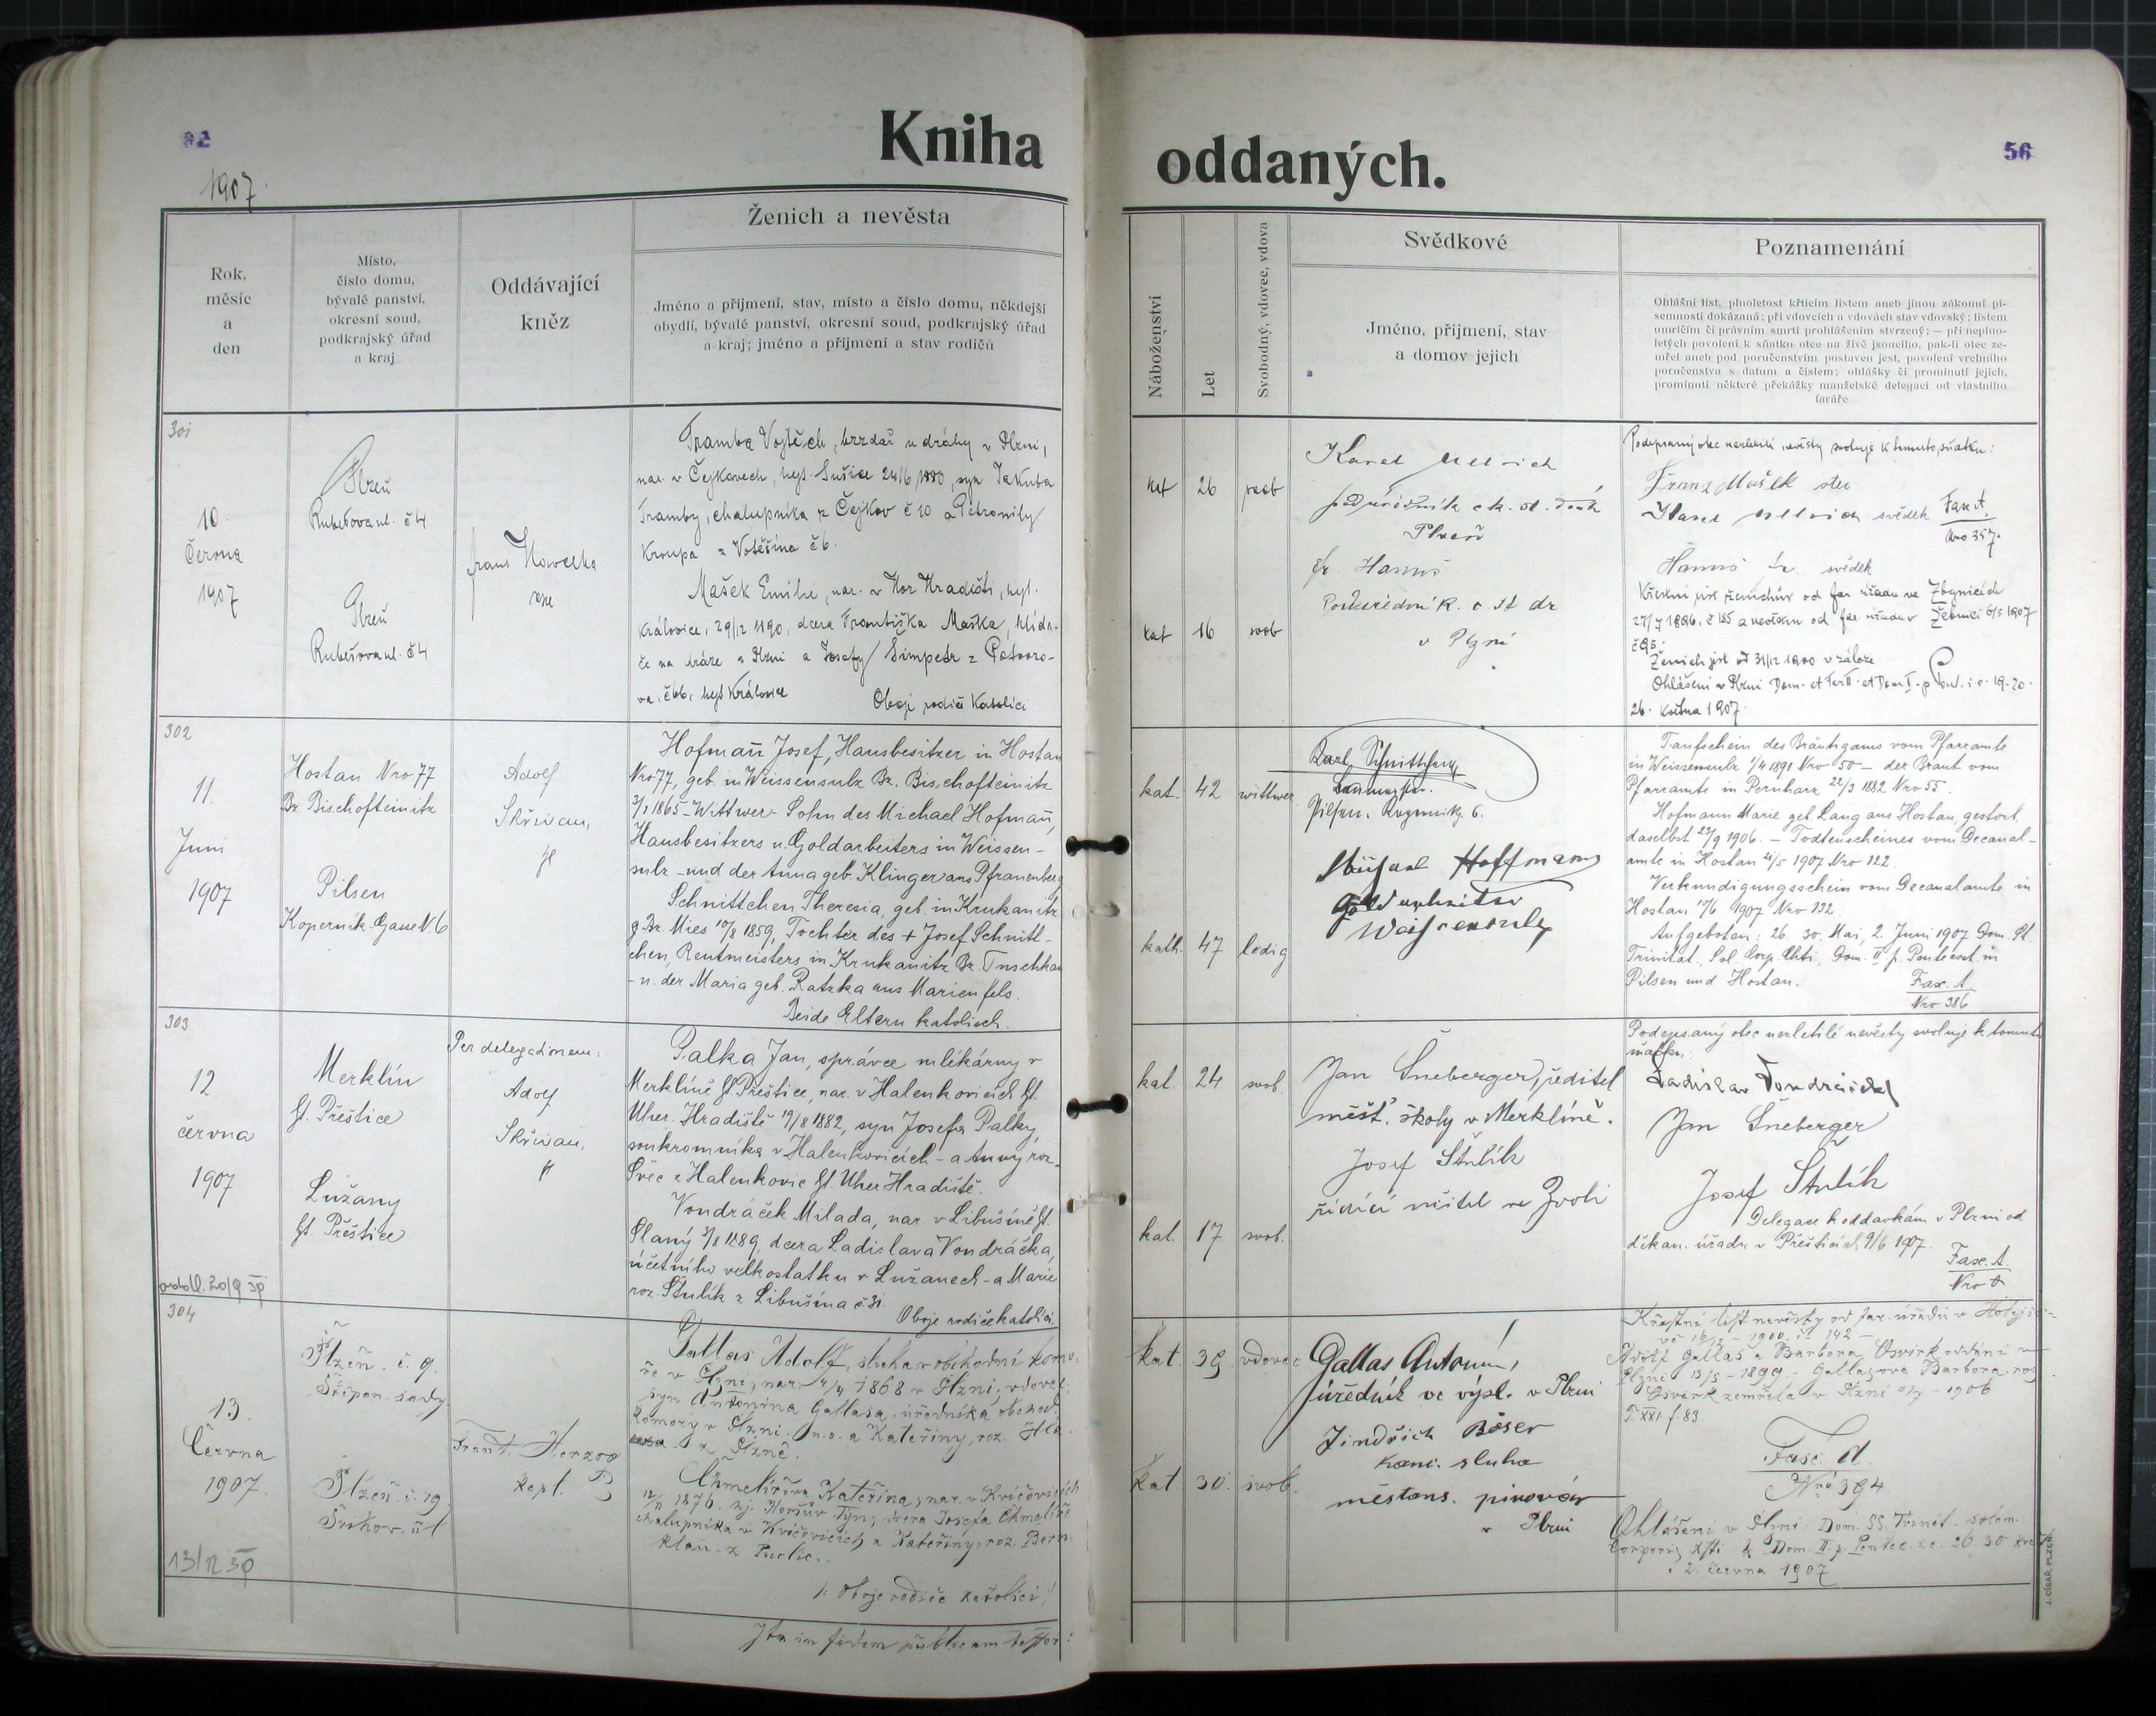 Kniha
oddaných.
56
1907.
Ženich a nevěsta
Rok,
měsíc
a
den
Místo,
číslo domu,
bývalé panství,
okresní soud,
podkrajský úřad
a kraj
Oddávající
kněz
Jméno a příjmení, stav, místo a číslo domu, někdejší
obydlí, bývalé panství, okresní soud, podkrajský úřad
a kraj; jméno a příjmení a stav rodičů
Náboženství
Let
Svobodný, vdovec, vdova
Svědkové
Jméno, příjmení, stav
a domov jejich
Poznamenání
Ohlášní list, plnoletost křticím listem aneb jinou zákonní pí-
semností dokázaná; při vdovcích a vdovách stav vdovský; listem
umrlčím či právním smrti prohlášením stvrzený; — při neplno-
letých povolení k sňatku otce na živě jsoucího, pak-li otec ze-
mřel aneb pod poručenstvím postaven jest, povolení vrchního
poručenstva s datum a číslem; ohlášky či prominutí jejich,
prominutí některé překážky manželské delegací od vlastního
faráře
301
10.
Června
1907
Plzeň
Rubešova ul. č 4
Plzeň
Rubešova ul. č 4
Tramba Vojtěch, brzdař u dráhy v Plzni,
nar. v Čejkovech, hejt. Sušice 24/6 1880, syn Jakuba
Tramby, chalupníka z Čejkov č 10 a Petronily
Kroupa z Votěšína č 6.
Mašek Emilie, nar. v Hor Hradišti, hejt.
Kralovice, 29/12 1890, dcera Františka Maška, hlída-
če na dráze v Plzni a Josefy Šimpetr z Potvoro-
va, č 66, hejt Kralovice
Oboji rodiče Katolíci
kat
26
svob
kat
16
svob
Karel
Plzeň
fr. Hanuš
v Plzni
Podepsaný otec nezletilé nevěsty svoluje k tomuto sňatku:
Franz Mašek otec
svědek
Fasc A.
Nro 357.
Hanuš fr. svědek
Křestní list ženichův od far. úřadu ve Zbynicích
27/7 1896, č 185 a nevěstin od far. úřadu v Žebnici 6/5 1907
č 95.
Ženich jest od 31/12 1900 v záloze
Ohlášeni v Plzni
26. května 1907.
302
11.
Juni
1907
Hostau Nro 77
Bz. Bischofteinitz
Pilsen
Kopernik-Gasse N. 6
Adolf
Skřivan,
Hofmann Josef, Hausbesitzer in Hostau
Nro 77, geb. in Weissensulz Bz. Bischofteinitz
3/1 1865 – Wittwer – Sohn des Michael Hofmann,
Hausbesitzers u. Goldarbeiters in Weissen-
sulz – und der Anna geb. Klinger aus Pfrauenberg
Schnittchen Theresia, geb. in Krukanitz
Bz. Mies 10/8 1859, Tochter des + Josef Schnitt-
chen, Rentmeisters in Krukanitz Bz. Tuschkau
– u. der Maria geb. Ratzka aus Marienfels.
Beide Eltern katolisch.
kat.
42
wittwer
kath.
47
ledig
Karl Schnittchen
Baumeister.
Pilsen.
Hoffmann
Weissensulz
Taufschein des Bräutigams vom Pfarramte
in Weissensulz 1/4 1891 Nro 50 – der Braut vom
Pfarramte in Pernharz 22/3 1882 Nro 55.
Hofmann Marie geb. Lang aus Hostau, gestorb.
daselbst 27/9 1906. – Todtenscheines vom Decanal-
amte in Hostau 21/5 1907 Nro 122
Verkündigungsschein vom Decanalamte in
Hostau 10/6 1907 Nro 132.
Aufgeboten: 26. 30. Mai, 2. Juni 1907 Dom. St.
Trinitat., Sol. Corp. Chti, Dom. II p. Pentecost in
Pilsen und Hostau.
Fasc. A
Nro 386
303
12
června
1907
Merklín
ht. Přeštice
Lužany
ht. Přeštice
Per delegationem:
Adolf
Skřivan,
Palka Jan, správce mlékárny v
Merklíně ht. Přeštice, nar. v Halenkovicích ht.
Uher. Hradiště 19/8 1882, syn Josefa Palky,
soukromníka v Halenkovicích – a Anny roz.
Švec z Halenkovic ht. Uher Hradiště.
Vondráček Milada, nar. v Libušíně ht.
Slaný 5/8 1889, dcera Ladislava Vondráčka,
účetního velkostatku v Lužanech – a Marie
roz. Štulík z Libušína č. 31.
Oboje rodiče katolíci.
kat.
24
svob.
kat.
17
svob.
Jan Šneberger, ředitel
měšť. školy v Merklíně.
Josef Štulík
řídící učitel ve Zvoli
Podepsaný otec nezletilé nevěsty svoluje k tomuto
sňatku.
Ladislav Vondráček
Jan Šneberger
Josef Štulík
Delegace k oddavkám v Plzni od
děkan. úřadu v Přešticích 9/6 1907.
Fasc. A.
304
13.
Června
1907.
Plzeň. č. 9.
Štěpán. sady
Plzeň. č. 19
Frant. Herzog
kapl.
Gallas Adolf, sluha v obchodní komo-
ře v Plzni, nar. 4/4 1868 v Plzni, vdovec,
syn Antonína Gallasa, úředníka obchod.
komory v Plzni. n.o. a Kateřiny, roz.
z Plzně.
Chmelířova Kateřina, nar. v Kvíčovicích
12/11 1876. hj. Horšův Týn; dcera Josefa Chmelíře
chalupníka v Kvíčovicích a Kateřiny, roz.
/: Oboje rodiče katolíci :/
Ita in fidem publicam testor:
13/12
kat.
39
vdovec
kat.
30
svob.
Gallas Antonín,
úředník ve výsl. v Plzni
Jindřich Böser
kanc. sluha
měšťans. pivovar
v Plzni
Křestní list nevěsty od far. úřadu v Holejšo-
Adolf Gallas a Barbora
Plzni 13/5 – 1899. – Gallasova Barbora, roz
zemřela v Plzni
T. XXI. f. 83.
Fasc. A.
Nro 394
Ohlášeni v Plzni: Dom. SS. Trinit. solem.
Corporis Xsti & Dom. II. p. Pentec. i.e. 26. 30. května
a 2. června 1907
J. CÍSAŘ, PLZEŇ.